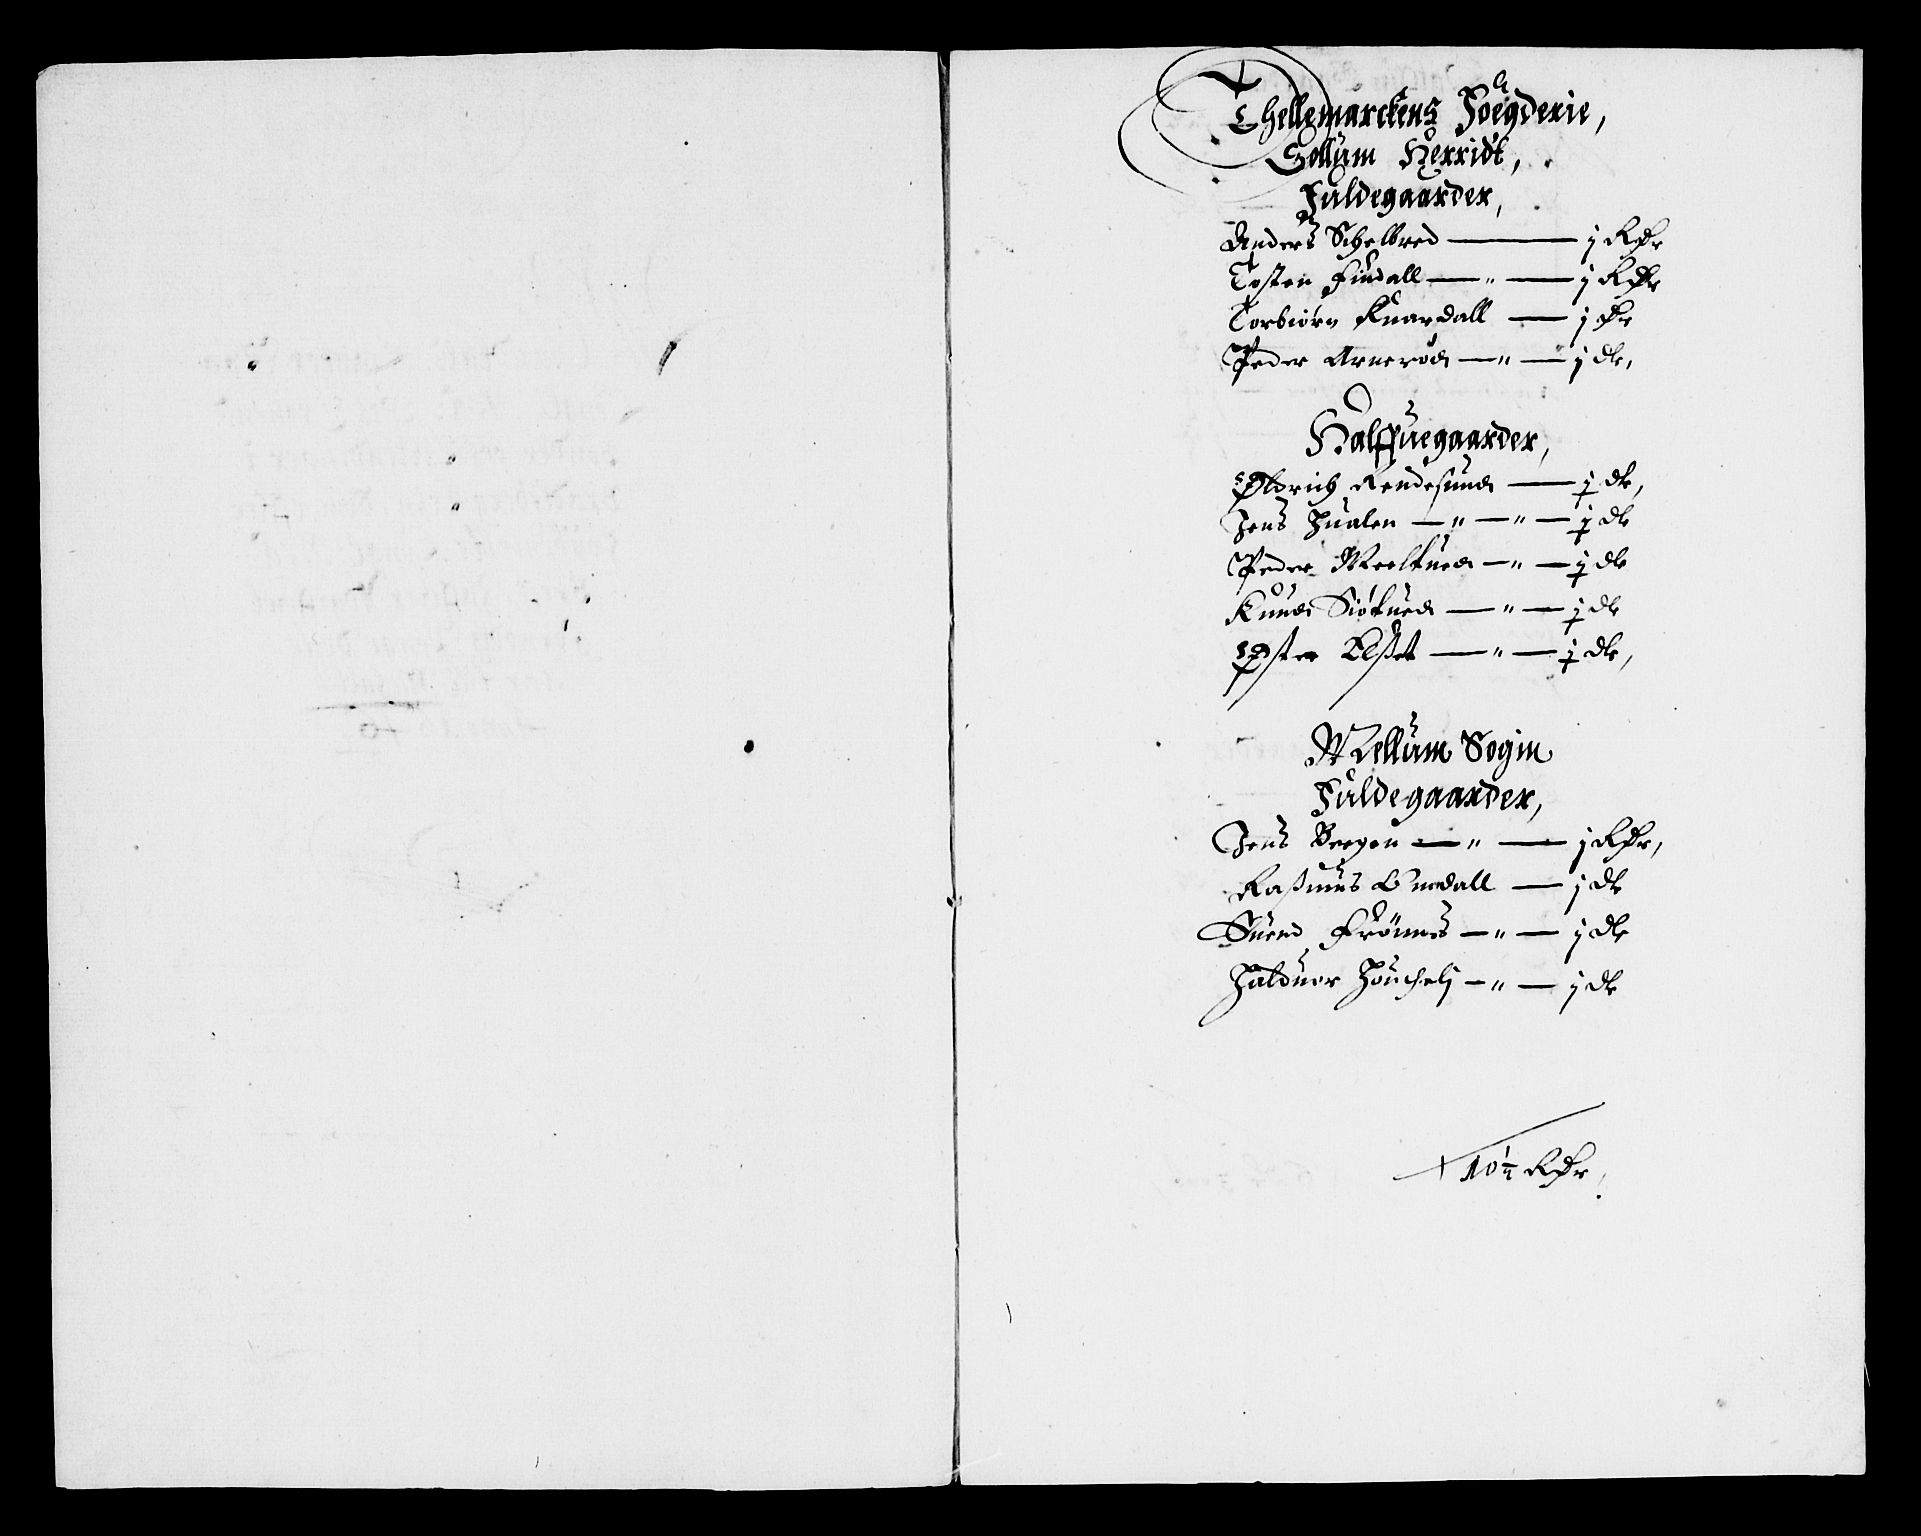 Thellemarckens Foegderie,
Sollum Herridt,
Fuldegaarder,
Anders Schelbred — j Rdr
Tosten Findall — " — j Rdr
Torbiörn Knardall — j dr
Peder Arneröd — " — j dr,
Halffuegaarder,
Oldrich Rendesund — ½ dr,
Jens Hualen — " — " — ½ dr
Peder Meelkued — " — ½ dr
Knud Siökued — " — ½ dr
Østen Elset — " — ½ dr,
Mellum Sogin
Fuldegaarder,
Jens Bergen — " — j Rdr,
Rasmus Omdall — j dr
Suend Frönnes — " — j dr
Halduor — " — j dr
10½ Rdr,